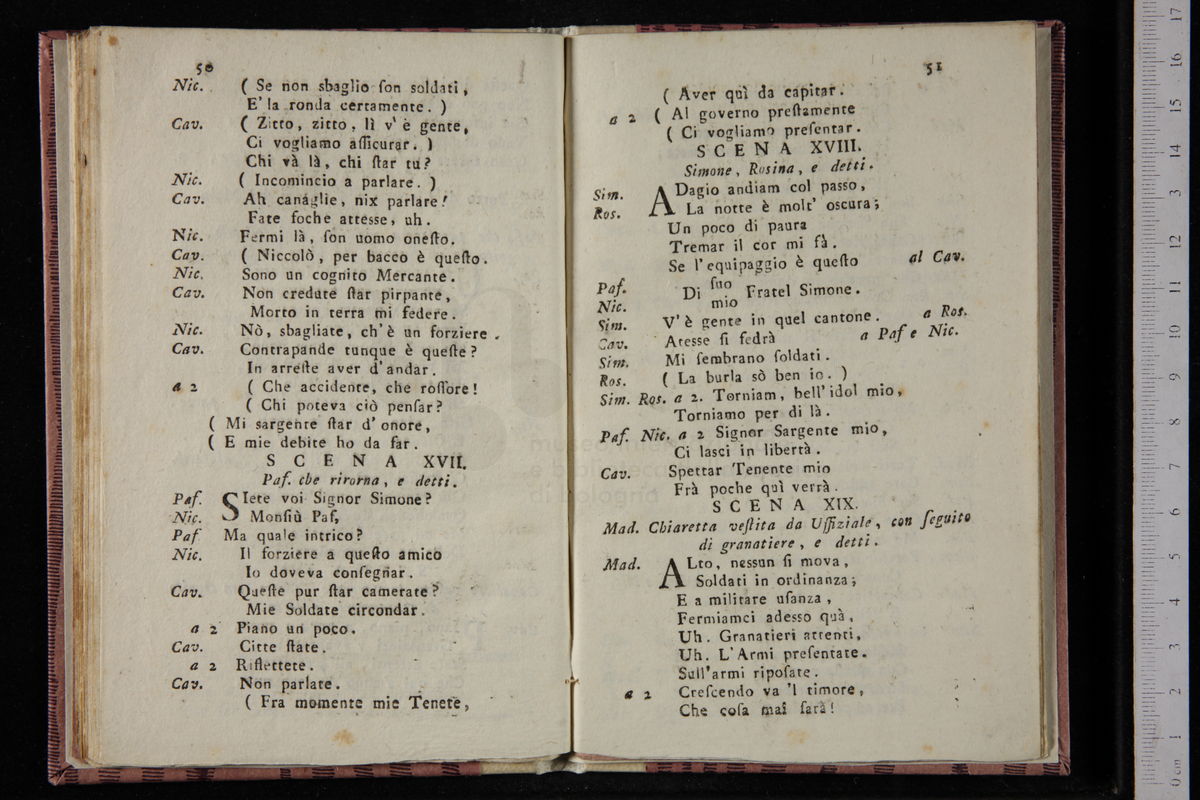 50
Nic. ( Se non sbaglio ſon soldati,
E' la ronda certamente. )
Cav. ( Zitto, zitto, lì v'è gente,
Ci vogliamo aſſicurar. )
Chi và là, chi ſtar tu?
Nic. ( Incomincio a parlare. )
Cav. Ah canáglie, nix parlare!
Fate foche attesse, uh.
Nic. Fermi là, ſon uomo oneſto.
Cav. ( Niccolò, per bacco è queſto.
Nic. Sono un cognito Mercante.
Cav. Non credute ſtar pirpante,
Morto in terra mi federe.
Nic. Nò, sbagliate, ch'è un forziere.
Cav. Contrapande tunque è queſte?
In arreſte aver d'andar.
a 2 ( Che accidente, che roſſore!
( Chi poteva ciò penſar?
( Mi sargente ſtar d'onore,
( E mie debite ho da far.
SCENA XVII.
Paf. che rirorna, e detti.
Paf. SIete voi Signor Simone?
Nic. Monſiù Paf,
Paf Ma quale intrico?
Nic. Il forziere a queſto amico
Io doveva conſegnar.
Cav. Queſte pur ſtar camerate?
Mie Soldate circondar.
a 2 Piano un poco.
Cav. Citte ſtate.
a 2 Riflettete.
Cav. Non parlate.
( Fra momente mie Tenete,
51
( Aver quì da capitar.
a 2 ( Al governo preſtamente
( Ci vogliamo preſentar.
SCENA XVIII.
Simone, Rosina, e detti.
Sim. ADagio andiam col passo,
Ros. La notte è molt' oscura;
Un poco di paura
Tremar il cor mi fà.
Se l'equipaggio è queſto al Cav.
Paf. Di ſuo Fratel Simone.
Nic. mio
Sim. V'è gente in quel cantone. a Ros.
Cav. Atesse ſi fedrà a Paf e Nic.
Sim. Mi ſembrano ſoldati.
Ros. ( La burla sò ben io. )
Sim. Ros. a 2. Torniam, bell'idol mio,
Torniamo per di là.
Paf. Nic. a 2 Signor Sargente mio,
Ci lasci in libertà.
Cav. Spettar Tenente mio
Frà poche quì verrà.
SCENA XIX.
Mad. Chiaretta veſtita da Uffiziale, con ſeguito
di granatiere, e detti.
Mad. ALto, nessun ſi mova,
Soldati in ordinanza;
E a militare uſanza,
Fermiamci adesso quà,
Uh. Granatieri attenti,
Uh. L'Armi preſentate.
Sull'armi ripoſate.
a 2 Creſcendo va 'l timore,
Che coſa mai ſarà!